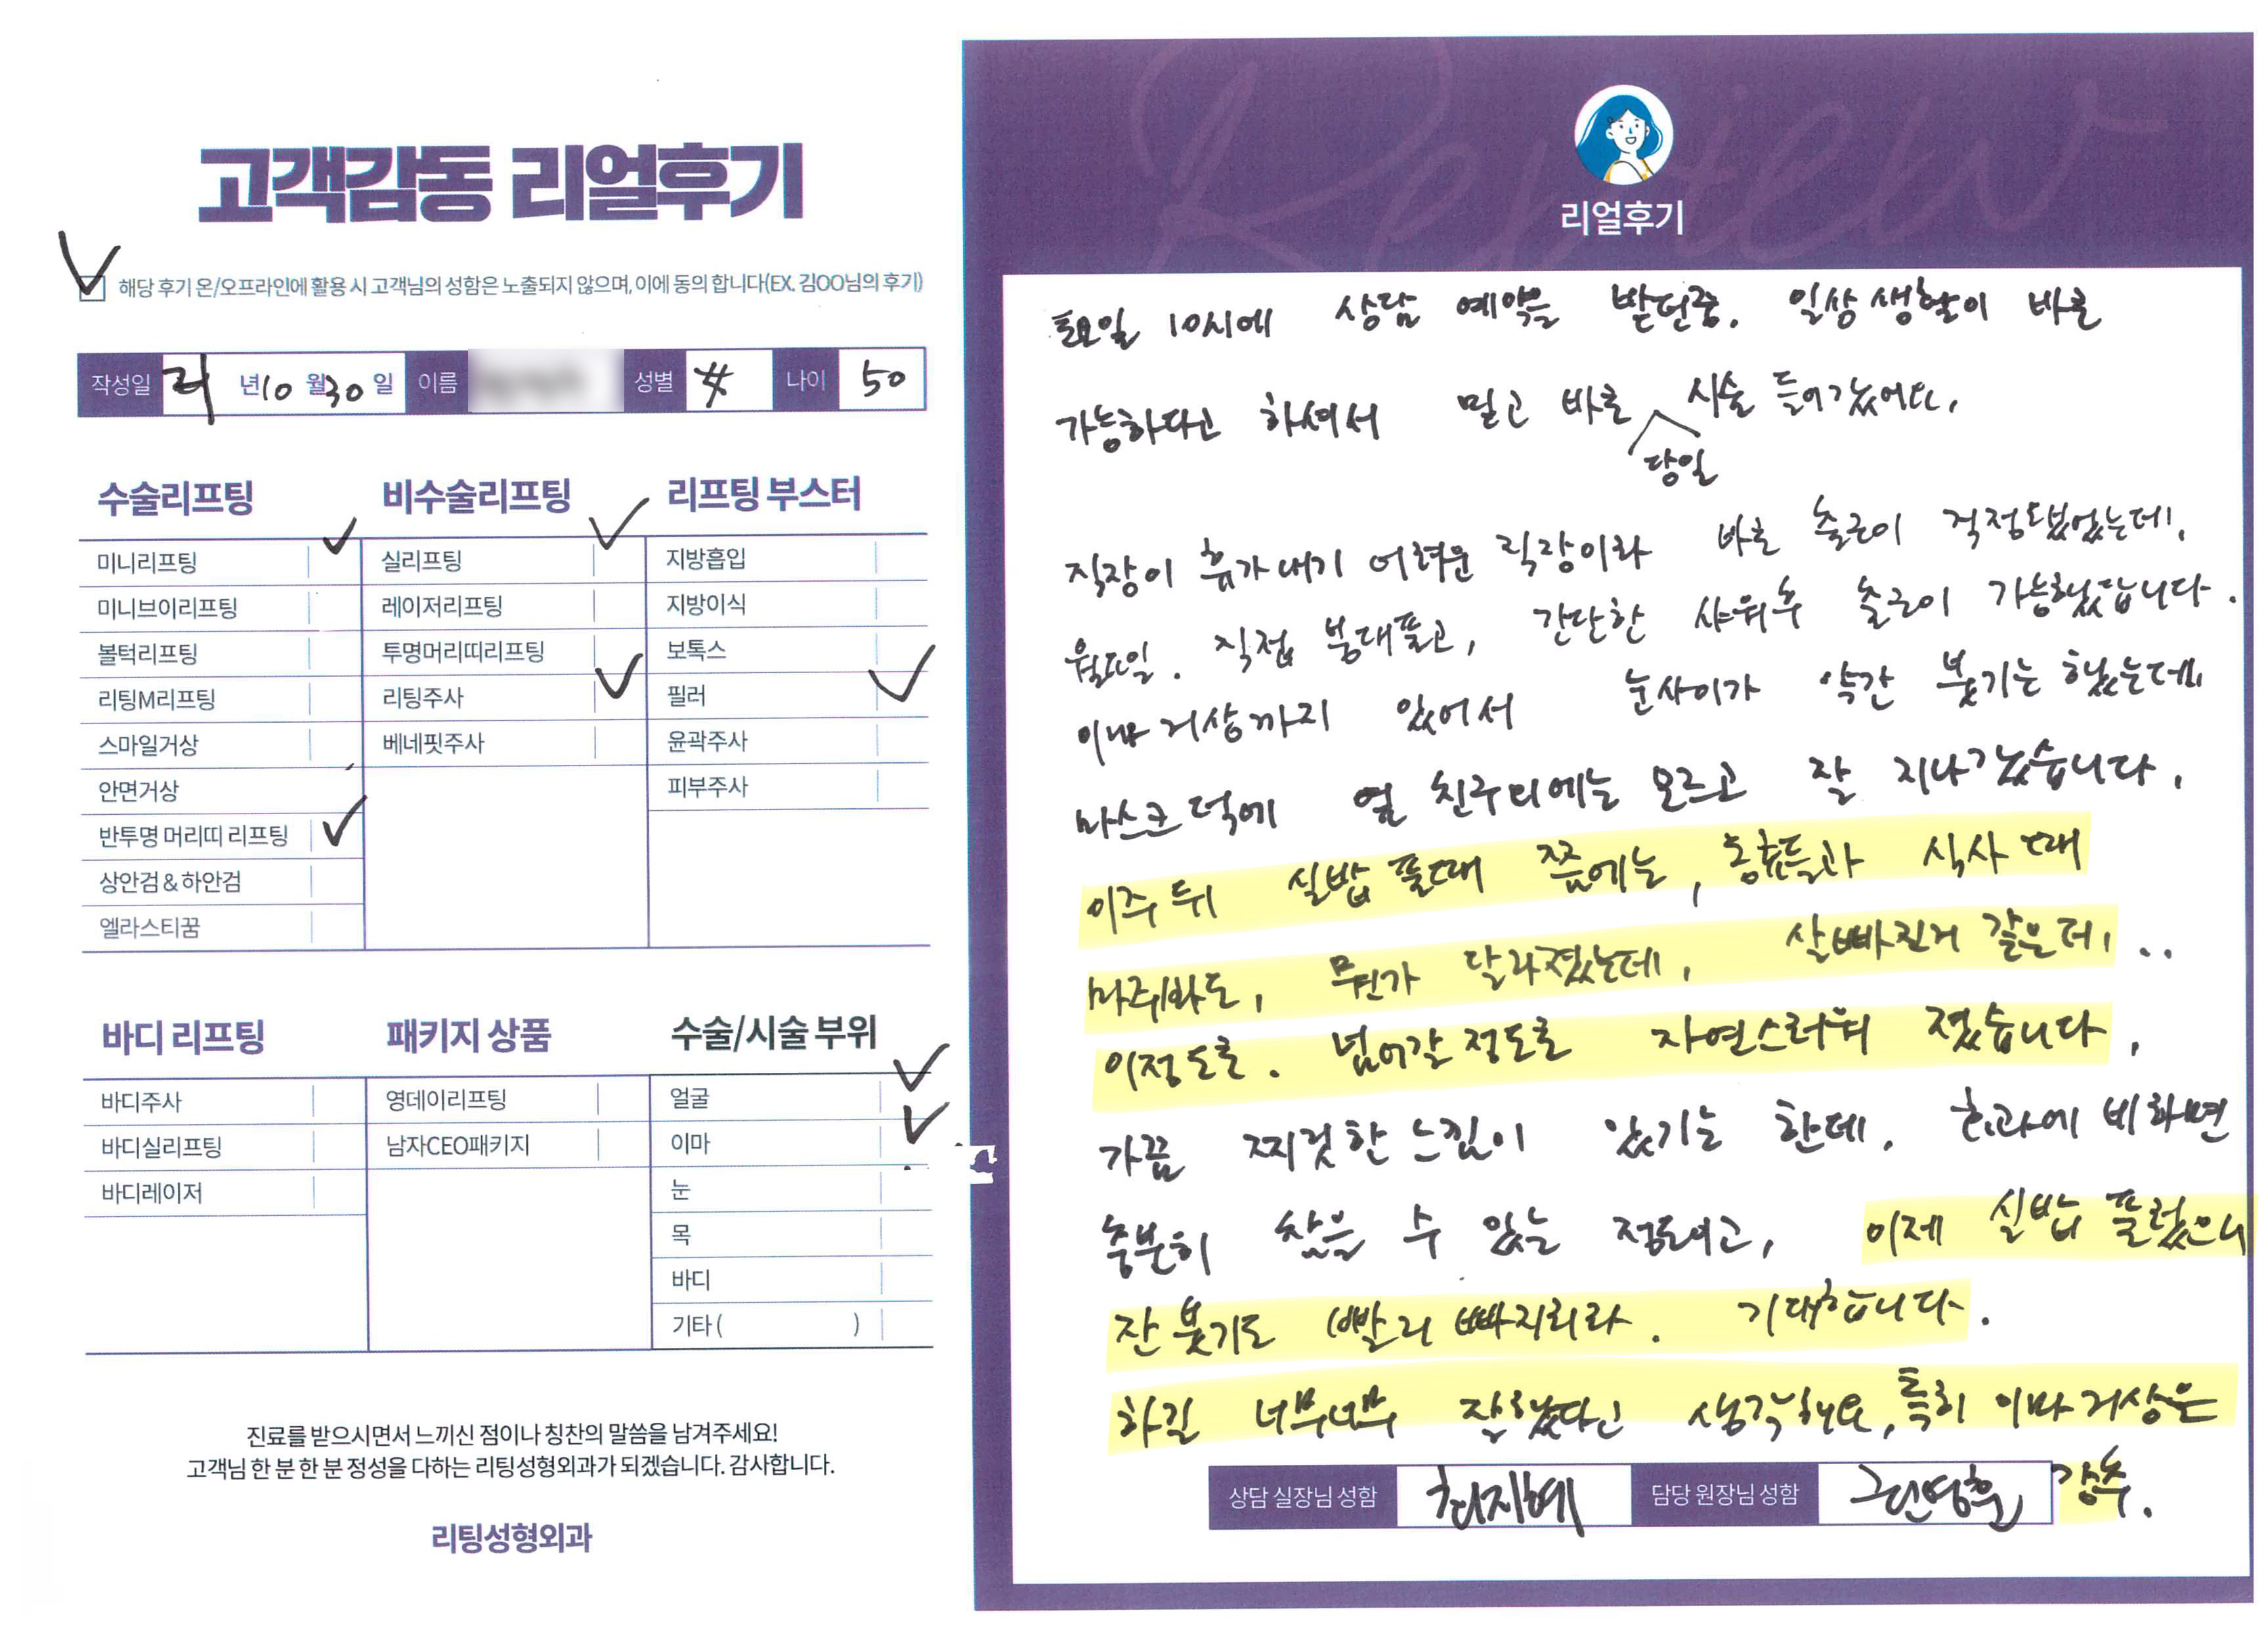 고객감동 리얼후기
해당 후기 온/오프라인에 활용 시 고객님의 성함은 노출되지 않으며, 이에 동의 합니다(EX. 김OO님의 후기)
작성일 21 년 10 월 30 일 이름 성별 나이 50
수술리프팅
미니리프팅
미니브이리프팅
볼턱리프팅
리팅M리프팅
스마일거상
안면거상
반투명 머리띠 리프팅
상안검 & 하안검
엘라스티꿈
비수술리프팅
실리프팅
레이저리프팅
투명머리띠리프팅
리팅주사
베네핏주사
리프팅 부스터
지방흡입
지방이식
보톡스
필러
윤곽주사
피부주사
바디 리프팅
바디주사
바디실리프팅
바디레이저
패키지 상품
영데이리프팅
남자CEO패키지
수술/시술 부위
얼굴
이마
눈
목
바디
기타 ( )
진료를 받으시면서 느끼신 점이나 칭찬의 말씀을 남겨주세요!
고객님 한 분 한 분 정성을 다하는 리팅성형외과가 되겠습니다. 감사합니다.
리팅성형외과
Review
리얼후기
토요일 10시에 상담 예약을 받던중, 일상생활이 바로
가능하다고 하셔서 믿고 바로 당일 시술 들어갔어요.
직장이 휴가내기 어려운 직장이라 바로 출근이 걱정도됐었는데,
월요일. 직접 붕대풀고, 간단한 샤워후 출근이 가능했답니다.
이마거상까지 있어서 눈사이가 약간 붓기는 했는데,
마스크 덕에 옆 친구리에는 모르고 잘 지나갔습니다.
이주 뒤 실밥 풀때 쯤에는, 동료들과 식사 때
마주봐도, 뭔가 달라졌는데, 살빠진거 같은데, ..
이정도로. 넘어갈 정도로 자연스러워 졌습니다.
가끔 찌릿한 느낌이 있기는 한데, 효과에 비하면
충분히 참을 수 있는 정도이고, 이제 실밥 풀렀으니
잔 붓기도 빨리 빠지리라. 기대합니다.
하길 너무너무 잘했다고 생각해요, 특히 이마거상은
강추.
상담 실장님 성함 담당 원장님 성함